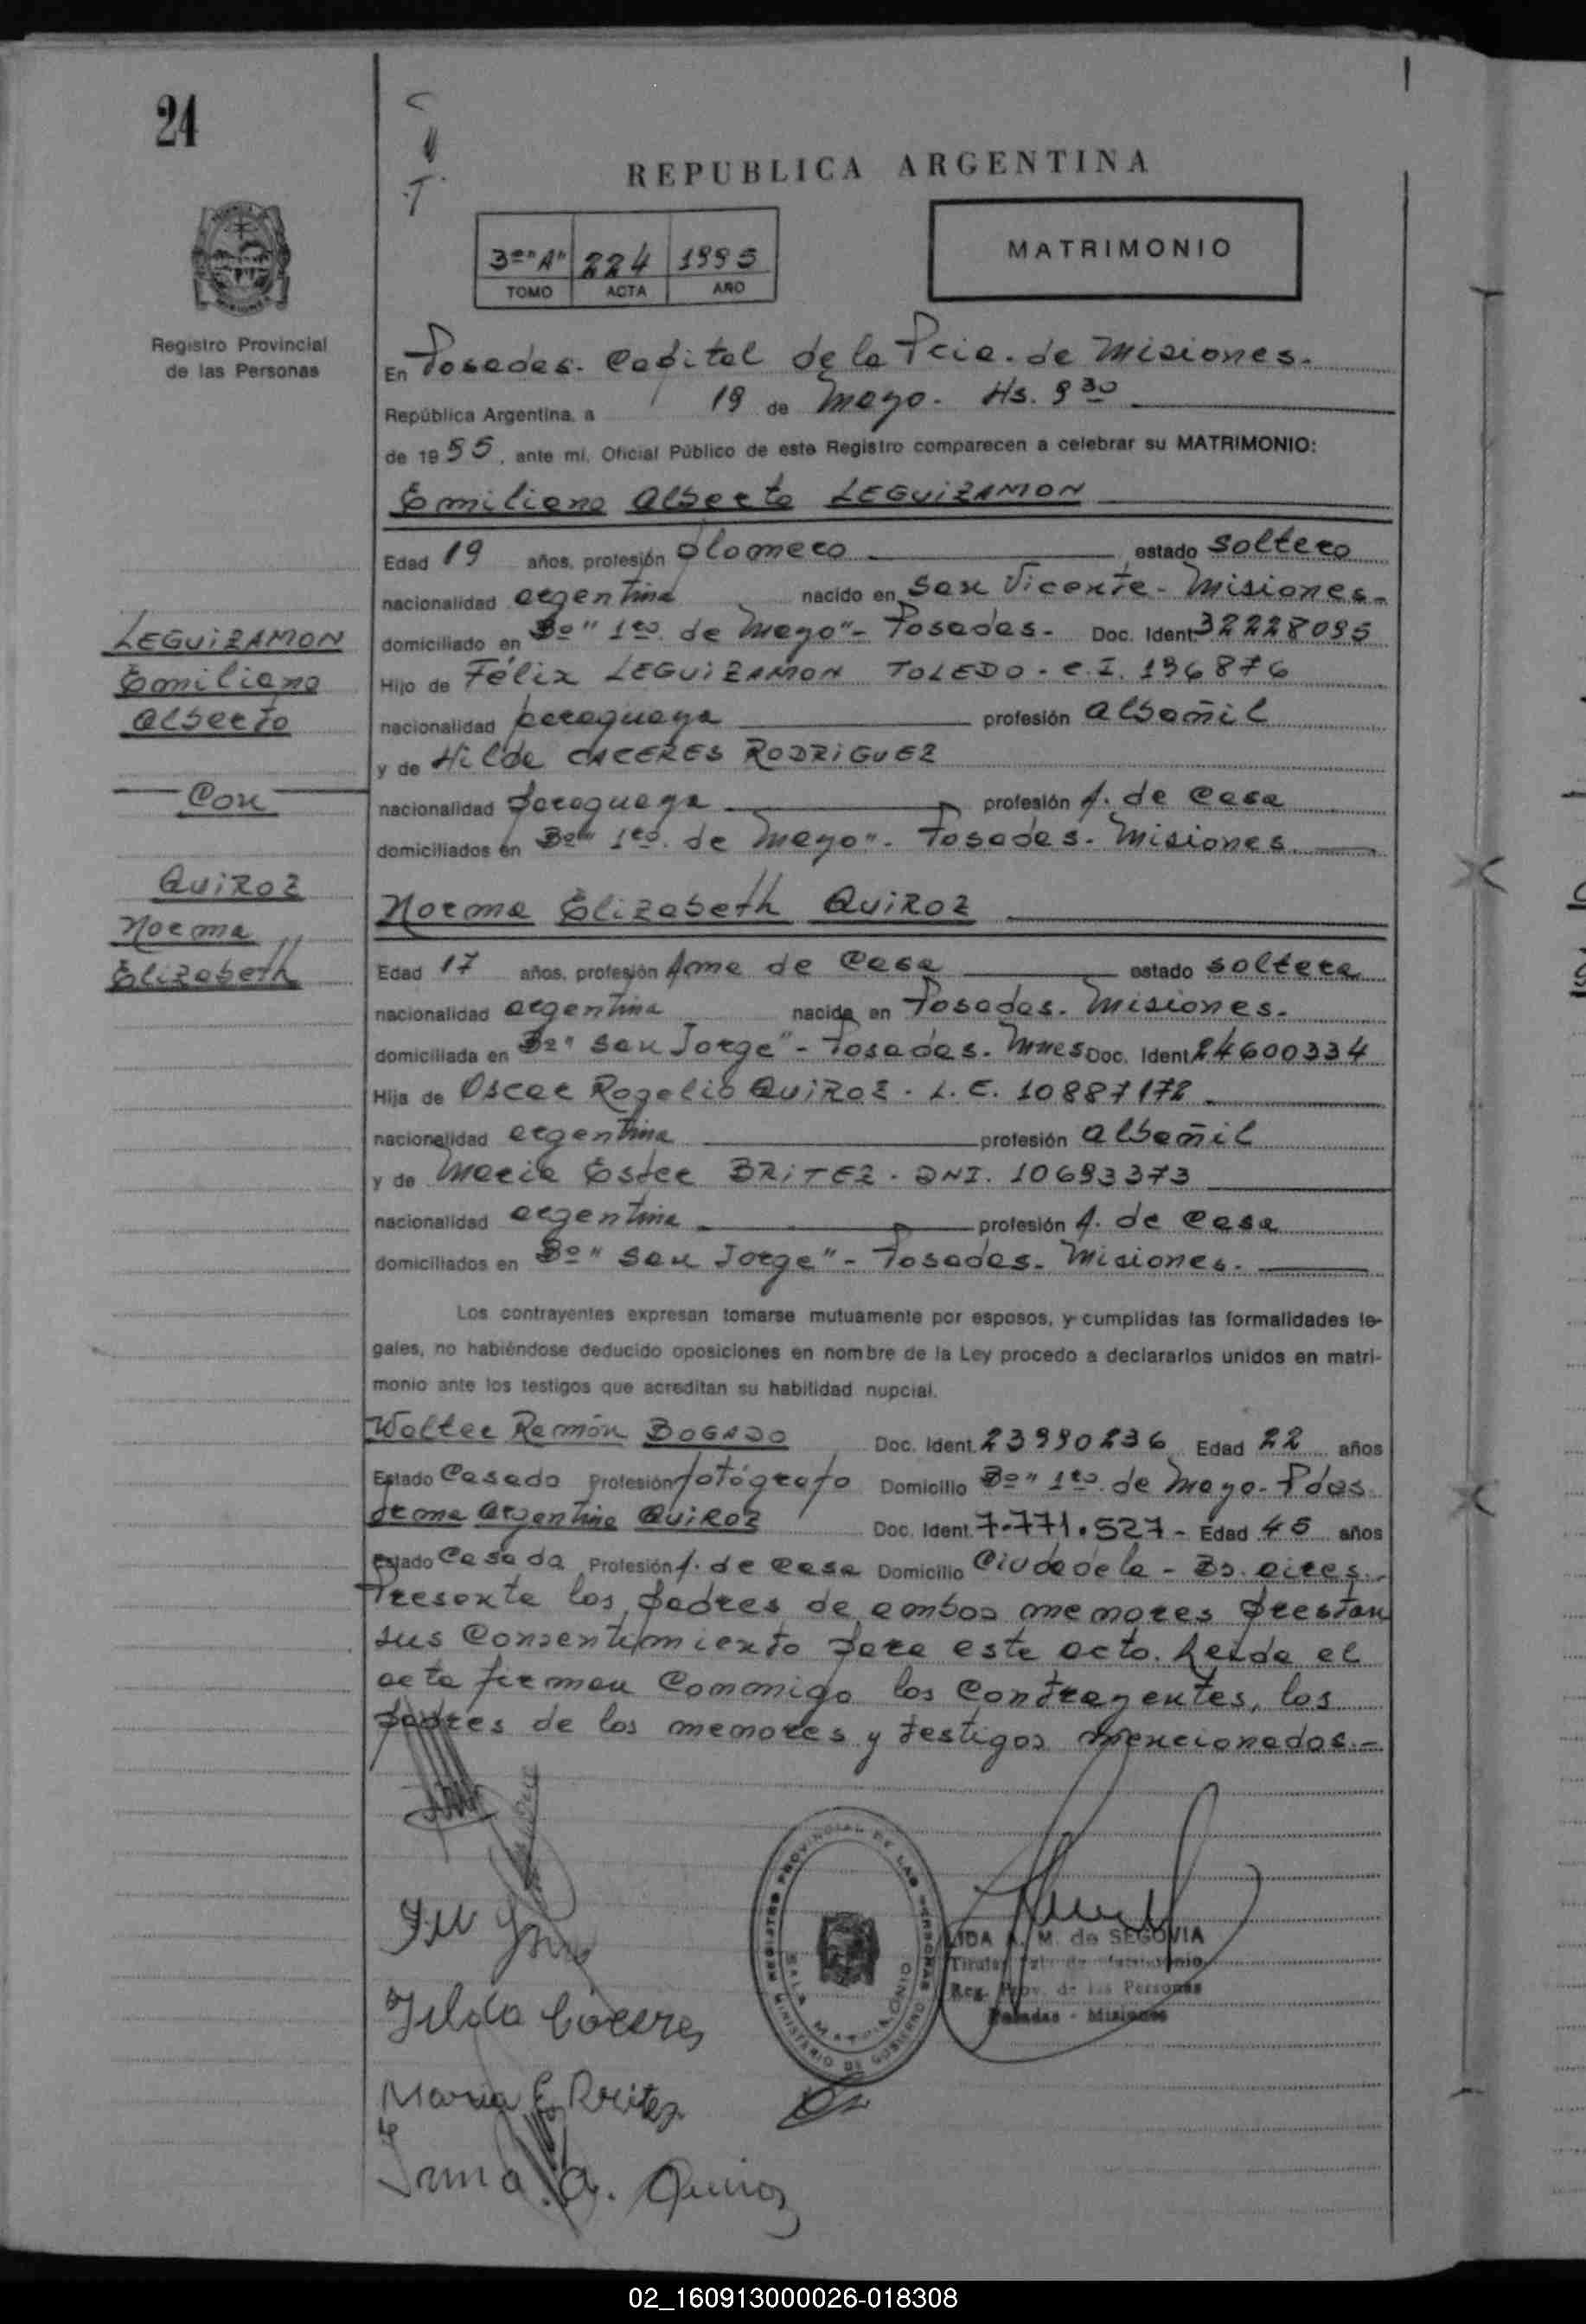 24
REPUBLICA ARGENTINA
3º "A" 224 1995
TOMO ACTA AÑO
MATRIMONIO
Registro Provincial
de las Personas
En Posadas. Capital de la Pcia. de Misiones.
República Argentina, a 19 de Mayo. Hs. 9 30
de 1995, ante mí, Oficial Público de este Registro comparecen a celebrar su MATRIMONIO:
Emiliano Alberto LEGUIZAMON
Edad 19 años, profesión plomero estado soltero
nacionalidad argentina nacido en San Vicente - Misiones.
domiciliado en Bº "1ro. de Mayo" - Posadas. Doc. Ident. 32228095
Hijo de Félix LEGUIZAMON TOLEDO. C.I. 196876
nacionalidad paraguaya profesión albañil
y de Hilda CACERES RODRIGUEZ
nacionalidad paraguaya profesión A. de casa
domiciliados en Bº "1ro. de Mayo". Posadas. Misiones
LEGUIZAMON
Emiliano
Alberto
Con
QUIROZ
Norma
Elizabeth
Norma Elizabeth QUIROZ
Edad 17 años, profesión Ama de casa estado soltera
nacionalidad argentina nacida en Posadas. Misiones.
domiciliada en Bº "San Jorge" - Posadas. Mnes Doc. Ident. 24600334
Hija de Oscar Rogelio QUIROZ. L.E. 10887172
nacionalidad argentina profesión albañil
y de Maria Ester BRITEZ. DNI. 10693373
nacionalidad argentina profesión A. de casa
domiciliados en Bº "San Jorge" - Posadas. Misiones.
Los contrayentes expresan tomarse mutuamente por esposos, y cumplidas las formalidades le-
gales, no habiéndose deducido oposiciones en nombre de la Ley procedo a declararlos unidos en matri-
monio ante los testigos que acreditan su habilidad nupcial.
Walter Ramón BOGADO Doc. Ident. 23990236 Edad 22 años
Estado Casado Profesión fotógrafo Domicilio Bº "1ro. de Mayo. Pdas.
Irma Argentina QUIROZ Doc. Ident. 7.771.527 - Edad 45 años
Estado Casada Profesión A. de casa Domicilio Ciudadela - Bs. aires.
Presente los padres de ambos menores prestan
sus Consentimiento para este acto. Leída el
acta firman Conmigo los Contrayentes, los
padres de los menores y testigos mencionados.-
REGISTRO PROVINCIAL DE LAS PERSONAS
MINISTERIO DE GOBIERNO
SALA MATRIMONIO
LIDA M. de SEGOVIA
Reg. Prov. de las Personas
Posadas - Misiones
Hilda Cáceres
Maria E. Britez
Irma A. Quiroz
02_160913000026-018308